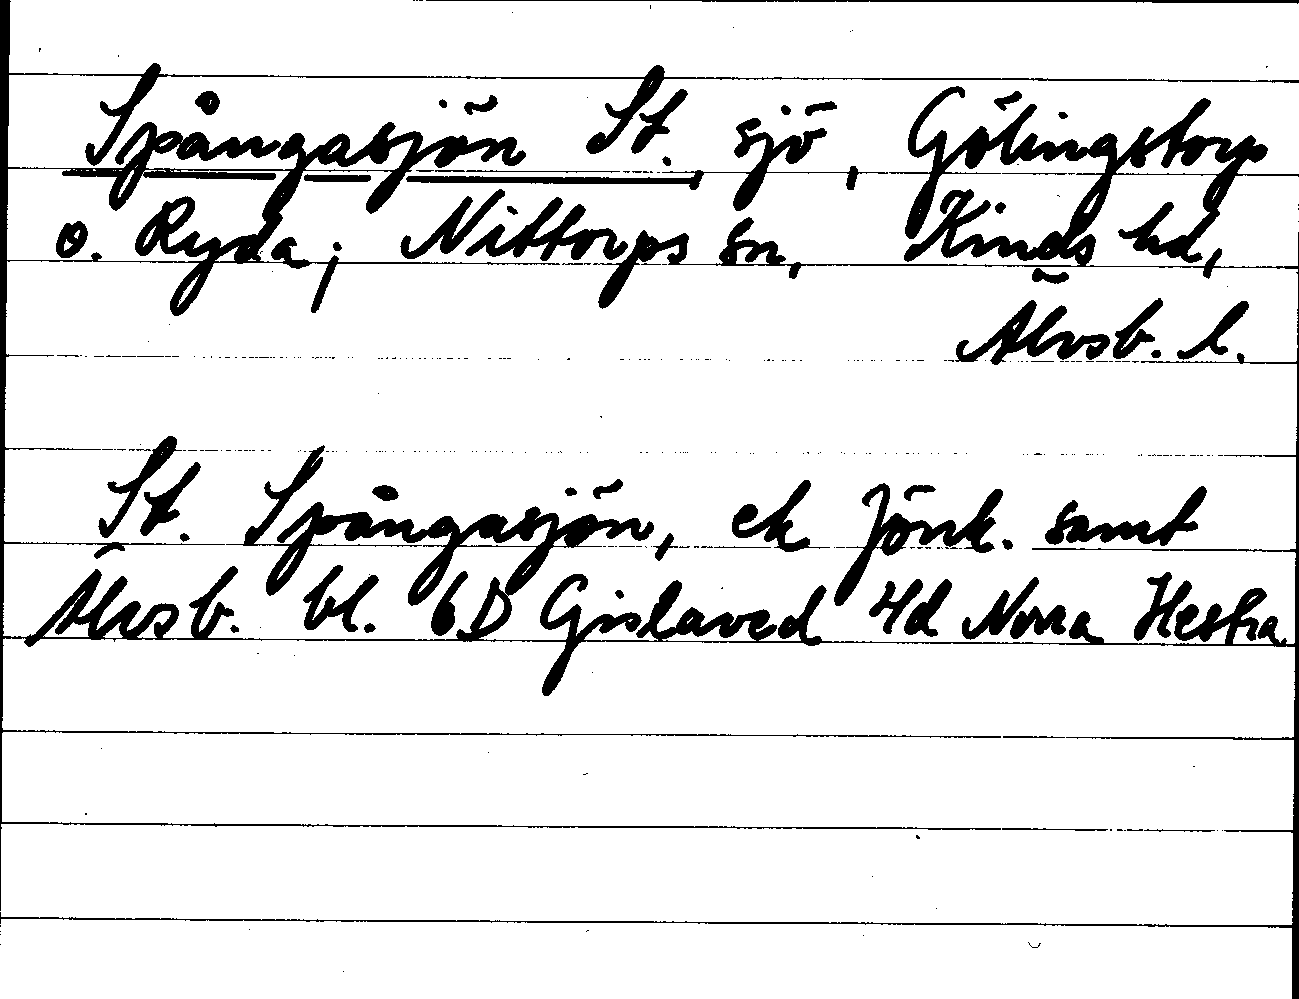 Spångasjön St., sjö, Gölingstorp
o. Ryda; Nittorps sn, Kinds hd,
Älvsb. l.
St. Spångasjön, ek Jönk. samt
Älvsb. bl. 6D Gislaved 4d Norra Hestra.